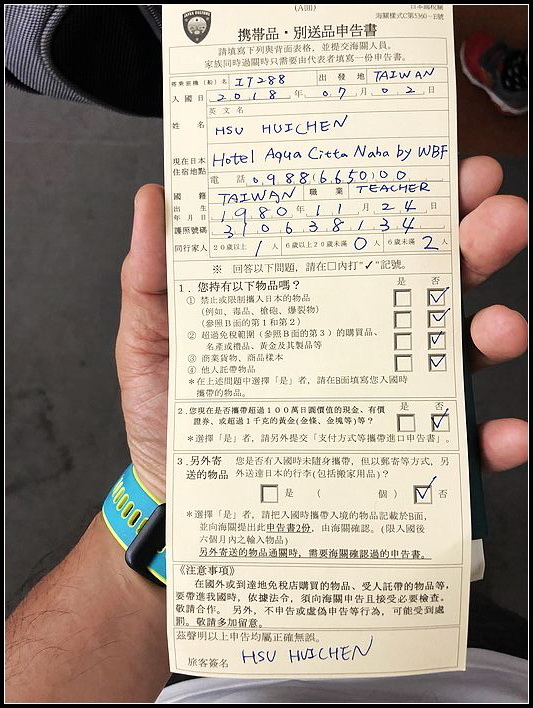 (A面)
日本国税關
海關樣式C第5360－E號
携帶品・別送品申告書
請填寫下列與背面表格，並提交海關人員。
家族同時過關時只需要由代表者填寫一份申告書。
搭乘航機(船)名 IT288 出發地 TAIWAN
入國日 2018年 07月 02日
英文名
姓名 HSU HUICHEN
現在日本住宿地點 Hotel Aqua Citta Naha by WBF
電話 0988665000
國籍 TAIWAN 職業 TEACHER
出生年月日 1980年 11月 24日
護照號碼 310638134
同行家人 20歲以上 1人 6歲以上20歲未滿 0人 6歲未滿 2人
※ 回答以下問題，請在□內打"✓"記號。
1．您持有以下物品嗎？ 是 否
① 禁止或限制攜入日本的物品 □ ☑
(例如、毒品、槍砲、爆裂物)
(參照B面的第1和第2) □ ☑
② 超過免稅範圍（參照B面的第3）的購買品、
名產或禮品、黃金及其製品等 □ ☑
③ 商業貨物、商品樣本 □ ☑
④ 他人託帶物品
＊在上述問題中選擇「是」者，請在B面填寫您入國時
攜帶的物品。
2.您現在是否攜帶超過100萬日圓價值的現金、有價 是 否
證券、或超過1千克的黃金(金條、金塊等)等？ □ ☑
＊選擇「是」者，請另外提交「支付方式等攜帶進口申告書」。
3．另外寄送的物品 您是否有入國時未隨身攜帶，但以郵寄等方式，另
外送達日本的行李(包括搬家用品)？
□ 是 ( 個 ) ☑ 否
＊選擇「是」者，請把入國時攜帶入境的物品記載於B面，
並向海關提出此申告書2份，由海關確認。(限入國後
六個月內之輸入物品)
另外寄送的物品通關時，需要海關確認過的申告書。
《注意事項》
在國外或到達地免稅店購買的物品、受人託帶的物品等，
要帶進我國時，依據法令，須向海關申告且接受必要檢查。
敬請合作。另外，不申告或虛偽申告等行為，可能受到處
罰。敬請多加留意。
茲聲明以上申告均屬正確無誤。
旅客簽名 HSU HUICHEN